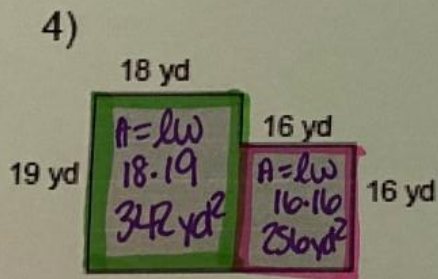 4)
18 yd
19 yd
A=lw
18·19
342 yd²
16 yd
16 yd
A=lw
16·16
256yd²